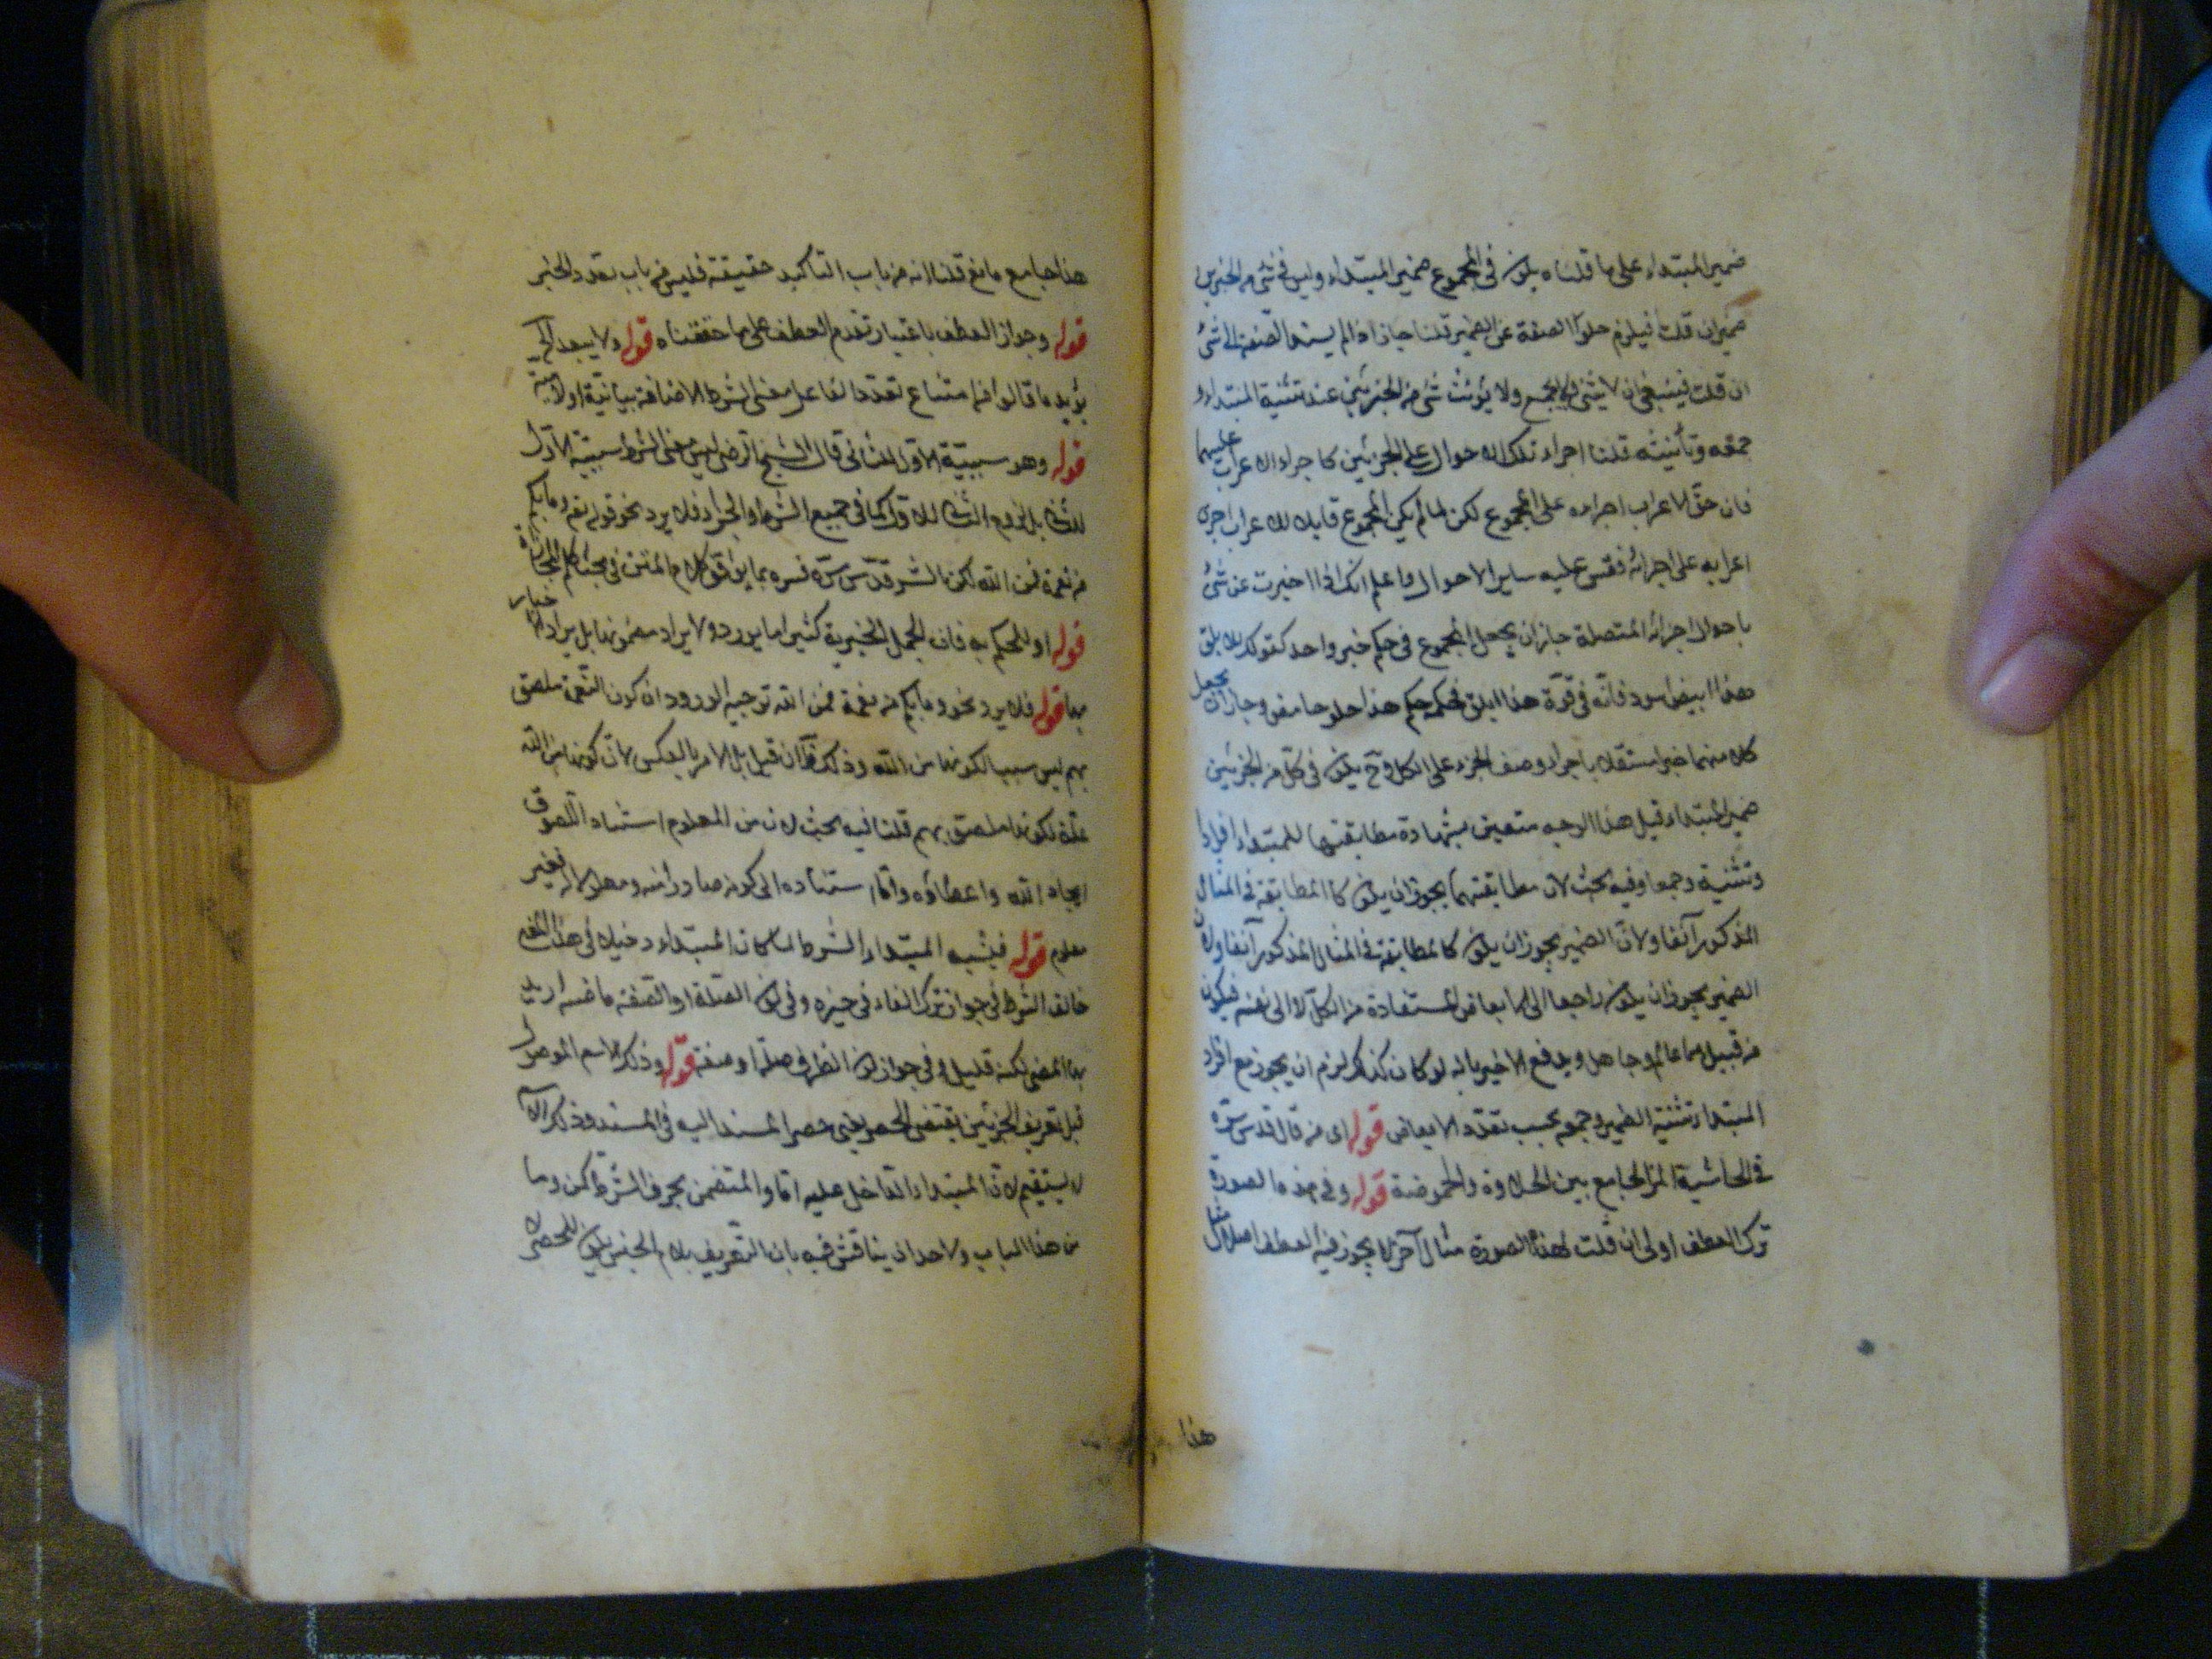 ضمير المبتداء على ما قلناه يكون في المجموع ضمير المبتداء وليس في شئ من الجزئين
ضمير ان قلت فيلزم خلو الصفة عن الضمير قلنا جاز اذا لم يسند الصفة الى شئ
ان قلت فينبغي ان لا يثنى ولا يجمع ولا يؤنث شئ من الجزئين عند تثنية المبتداء و
جمعه وتأنيثه قلنا اجراء تلك الاحوال على الجزئين كاجراء الاعراب عليهما
فان حق الاعراب اجراءه على المجموع لكن لما لم يكن المجموع قابلا للاعراب اجرى
اعرابه على اجزائه فقس عليه ساير الاحوال واعلم انك اذا اخبرت عن شئ
باحوال اجزائه المتصلة جاز ان يجعل المجموع في حكم خبر واحد كقولك للابلق
هذا ابيض اسود فانه في قوة هذا ابلق فحكمه حكم هذا حلو حامض وجاز ان يجعل
كلا منهما خبرا مستقلا باجراء وصف الجزء على الكل وح يكون في كل من الجزئين
ضمير المبتداء قيل هذا الوجه متعين بشهادة مطابقتهما للمبتداء افرادا
وتثنية وجمعا وفيه بحث لان مطابقتهما يجوز ان يكون كالمطابقة في المثال
المذكور آنفا ولان الضمير يجوز ان يكون كالمطابقة في المثال المذكور آنفا ولان
الضمير يجوز ان يكون راجعا الى الابعاض المستفادة من الكل لا الى نفسه فيكون
من قبيل هما عالم وجاهل ويدفع الاخير بانه لو كان كذلك لزم ان يجوز مع افراد
المبتداء تثنية الضمير وجمعه بحسب تعدد الابعاض قوله اى مز قال قدس سره
في الحاشية المز الجامع بين الحلاوة والحموضة قوله وفي هذه الصورة
ترك العطف اولى ان قلت لهذه الصورة مثال آخر لا يجوز فيه العطف اصلا مثل
هذا
هذا جامع مانع قلنا انه من باب التاكيد حقيقة فليس من باب تعدد الخبر
قوله وجواز العطف باعتبار تقدم العطف على ما حققناه قوله ولا يبعد الخ
يؤيد ما قالوا في امتناع تعدد الفاعل معنى الشرط الاضافة بيانية او لامية
قوله وهو سببية الاول للثاني قال الشيخ الرضى ليس معنى الشرط سببية الاول
للثاني بل لزوم الثاني للاول كما في جميع الشرط والجزاء فلا يرد نحو قوله تعم وما بكم
من نعمة فمن الله لكن الش قدس سره فسره بما يوافق كلام المتن في بحث كلم المجازاة
قوله او للحكم به فان الجمل الخبرية كثيرا ما يورد ولا يراد مضمونها بل يراد الاخبار
بها قوله فلا يرد نحو وما بكم من نعمة فمن الله توجيه الورود ان كون النعمة ملصق
بهم ليس سببا لكونها من الله وذلك ظ ان قيل بل الامر بالعكس لان كونها من الله
علة لكونها ملصق بهم قلنا فيه بحث لان من المعلوم استناد اللصوق
ايجاد الله واعطاؤه واما استناده الى كونه صادرا منه ومعلولا له فغير
معلوم قوله فيشبه المبتداء الشرط لما كان المبتداء دخيلا في هذا
خالف الشرط في جواز ترك الفاء في حيزه وفي كون الصلة او الصفة ماضيه اريد
بها المضى لكنه قليل وفي جواز كون الظرف صلة او صفة قوله وذلك الاسم الموصول
قيل تعريف الجزئين يقتضى الحصر يعنى حصر المسند اليه في المسند وذلك
لا يستقيم لان المبتداء الداخل عليه اما والمتضمن بحرف الشرط كمن وما
من هذا الباب ولاحد ان يناقش فيه بان التعريف بلام الجنس يكون للحصر